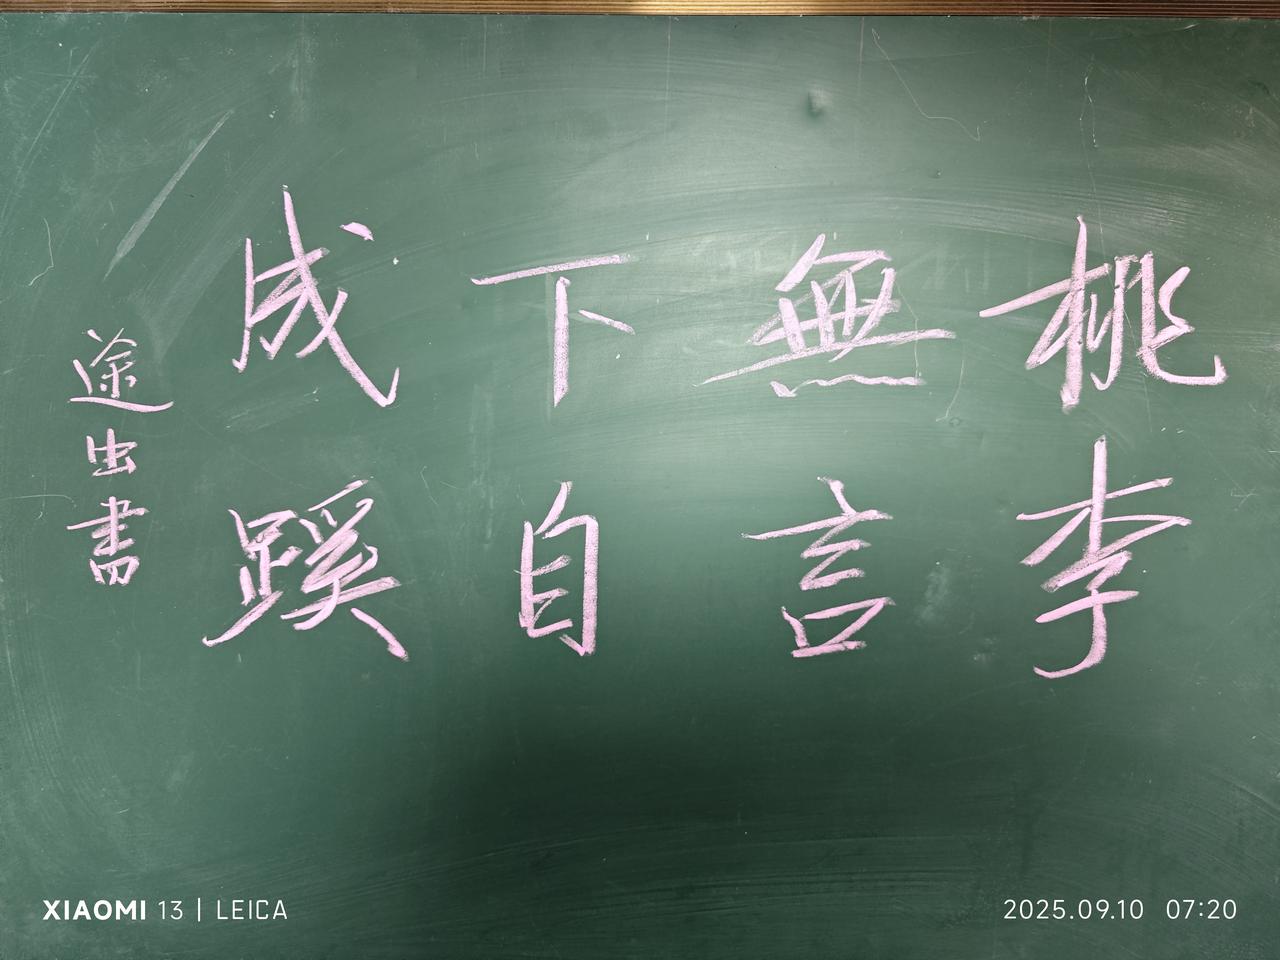 桃李
無言
下自
成蹊
途出書
XIAOMI 13 | LEICA
2025.09.10 07:20